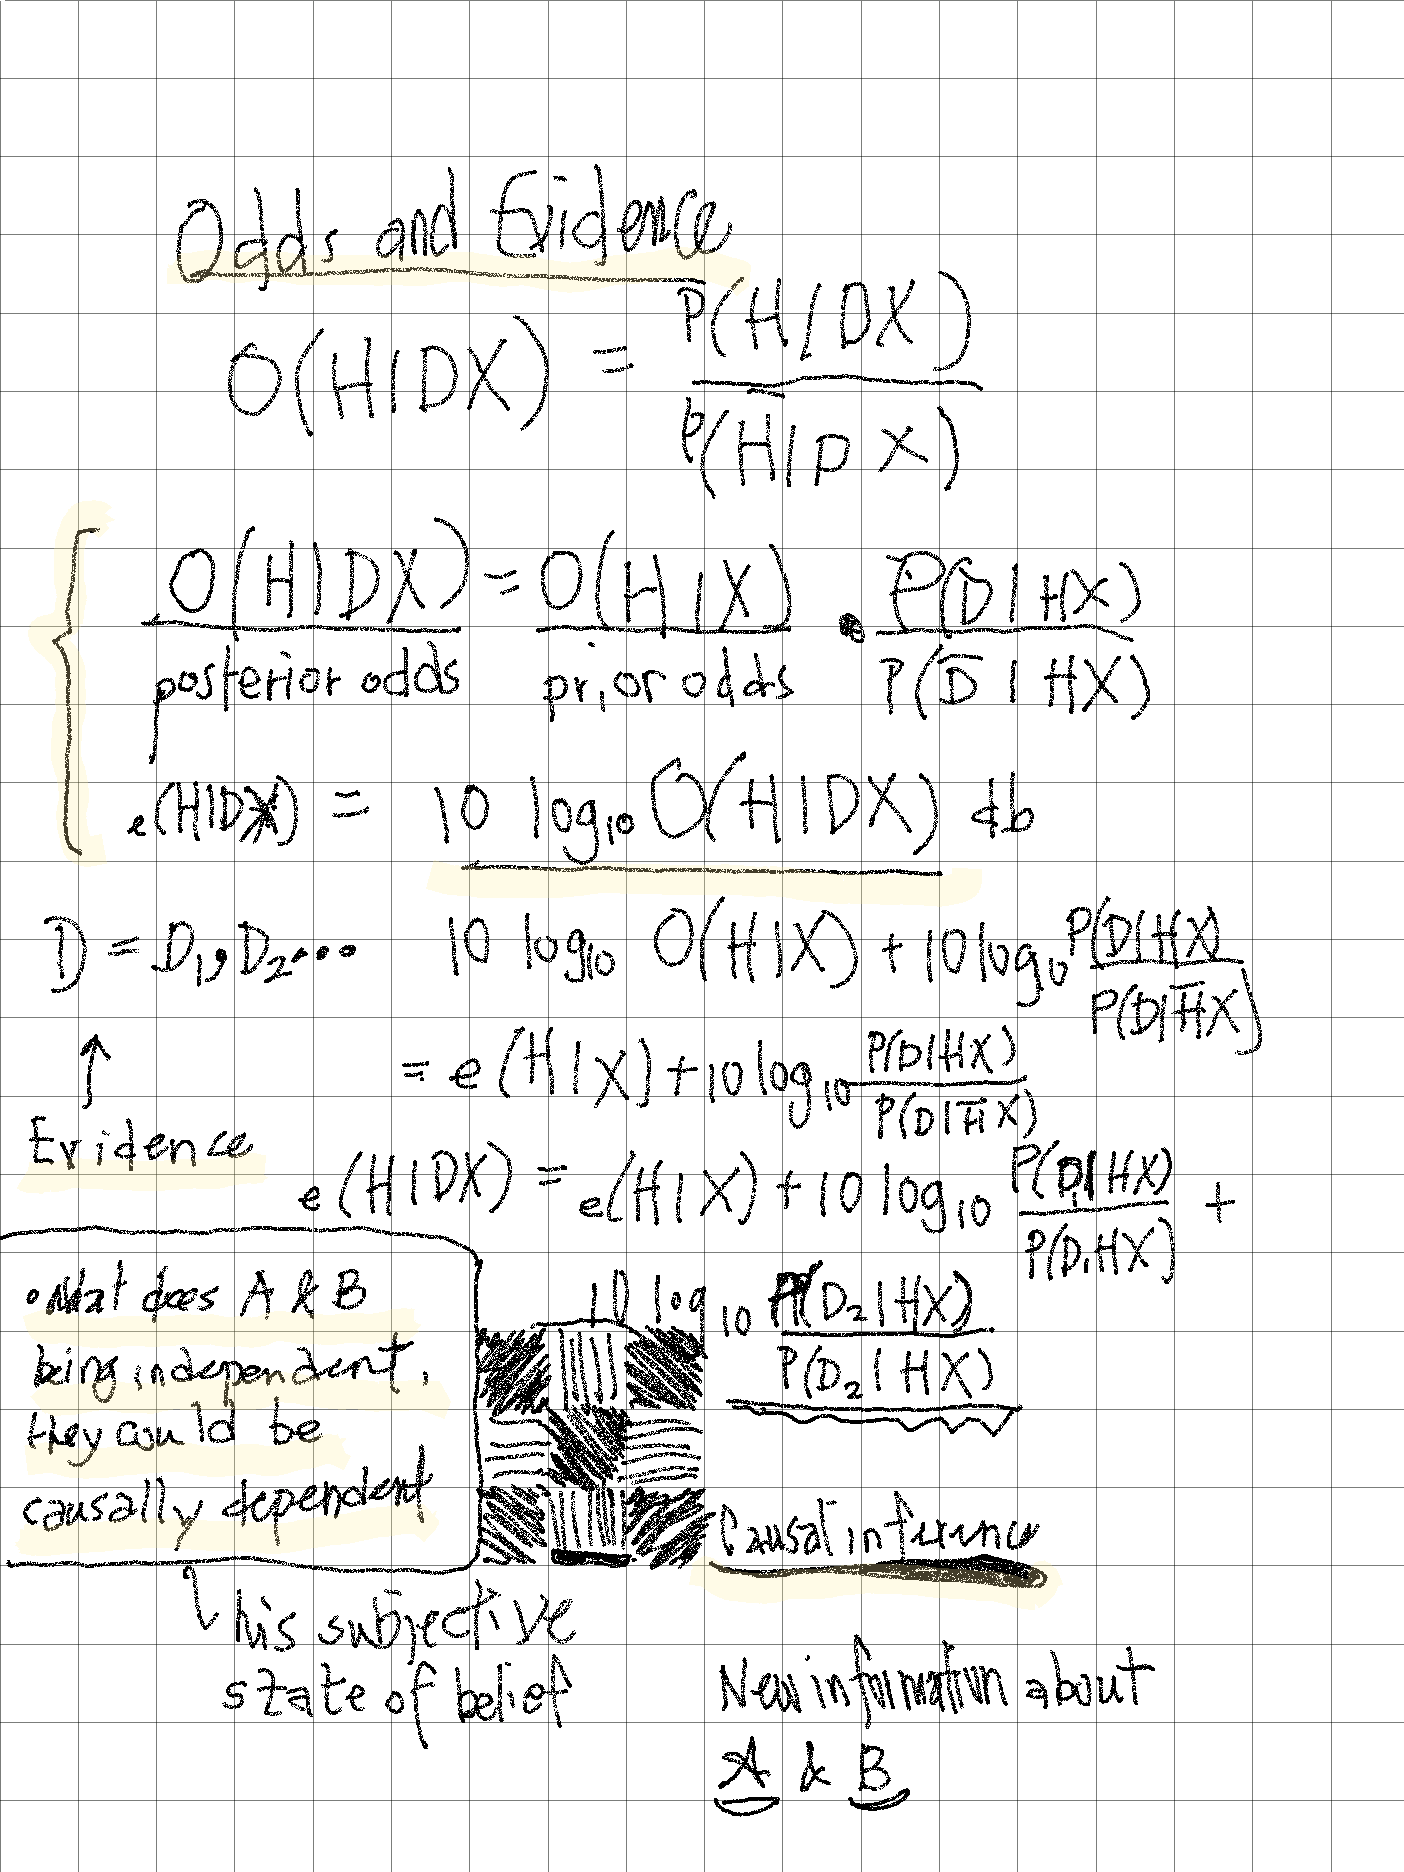 Odds and Evidence
O(H|DX) = P(H|DX) / P(H̅|DX)
O(H|DX) = O(H|X) · P(D|HX) / P(D̅|HX)
posterior odds prior odds
e(H|DX) = 10 log₁₀ O(H|DX) db
D = D₁, D₂... 10 log₁₀ O(H|X) + 10 log₁₀ P(D|HX) / P(D|H̅X)
= e(H|X) + 10 log₁₀ P(D|HX) / P(D|H̅X)
↑
Evidence
e(H|DX) = e(H|X) + 10 log₁₀ P(D₁|HX) / P(D₁HX) +
10 log₁₀ P(D₂|HX) / P(D₂|HX)
• What does A & B
being independent,
they could be
causally dependent
his subjective
state of belief
Causal inference
New information about
A & B